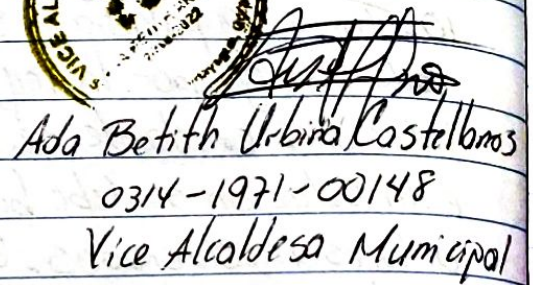 VICE AL
Ada Betith Urbina Castellanos
0314-1971-00148
Vice Alcaldesa Municipal